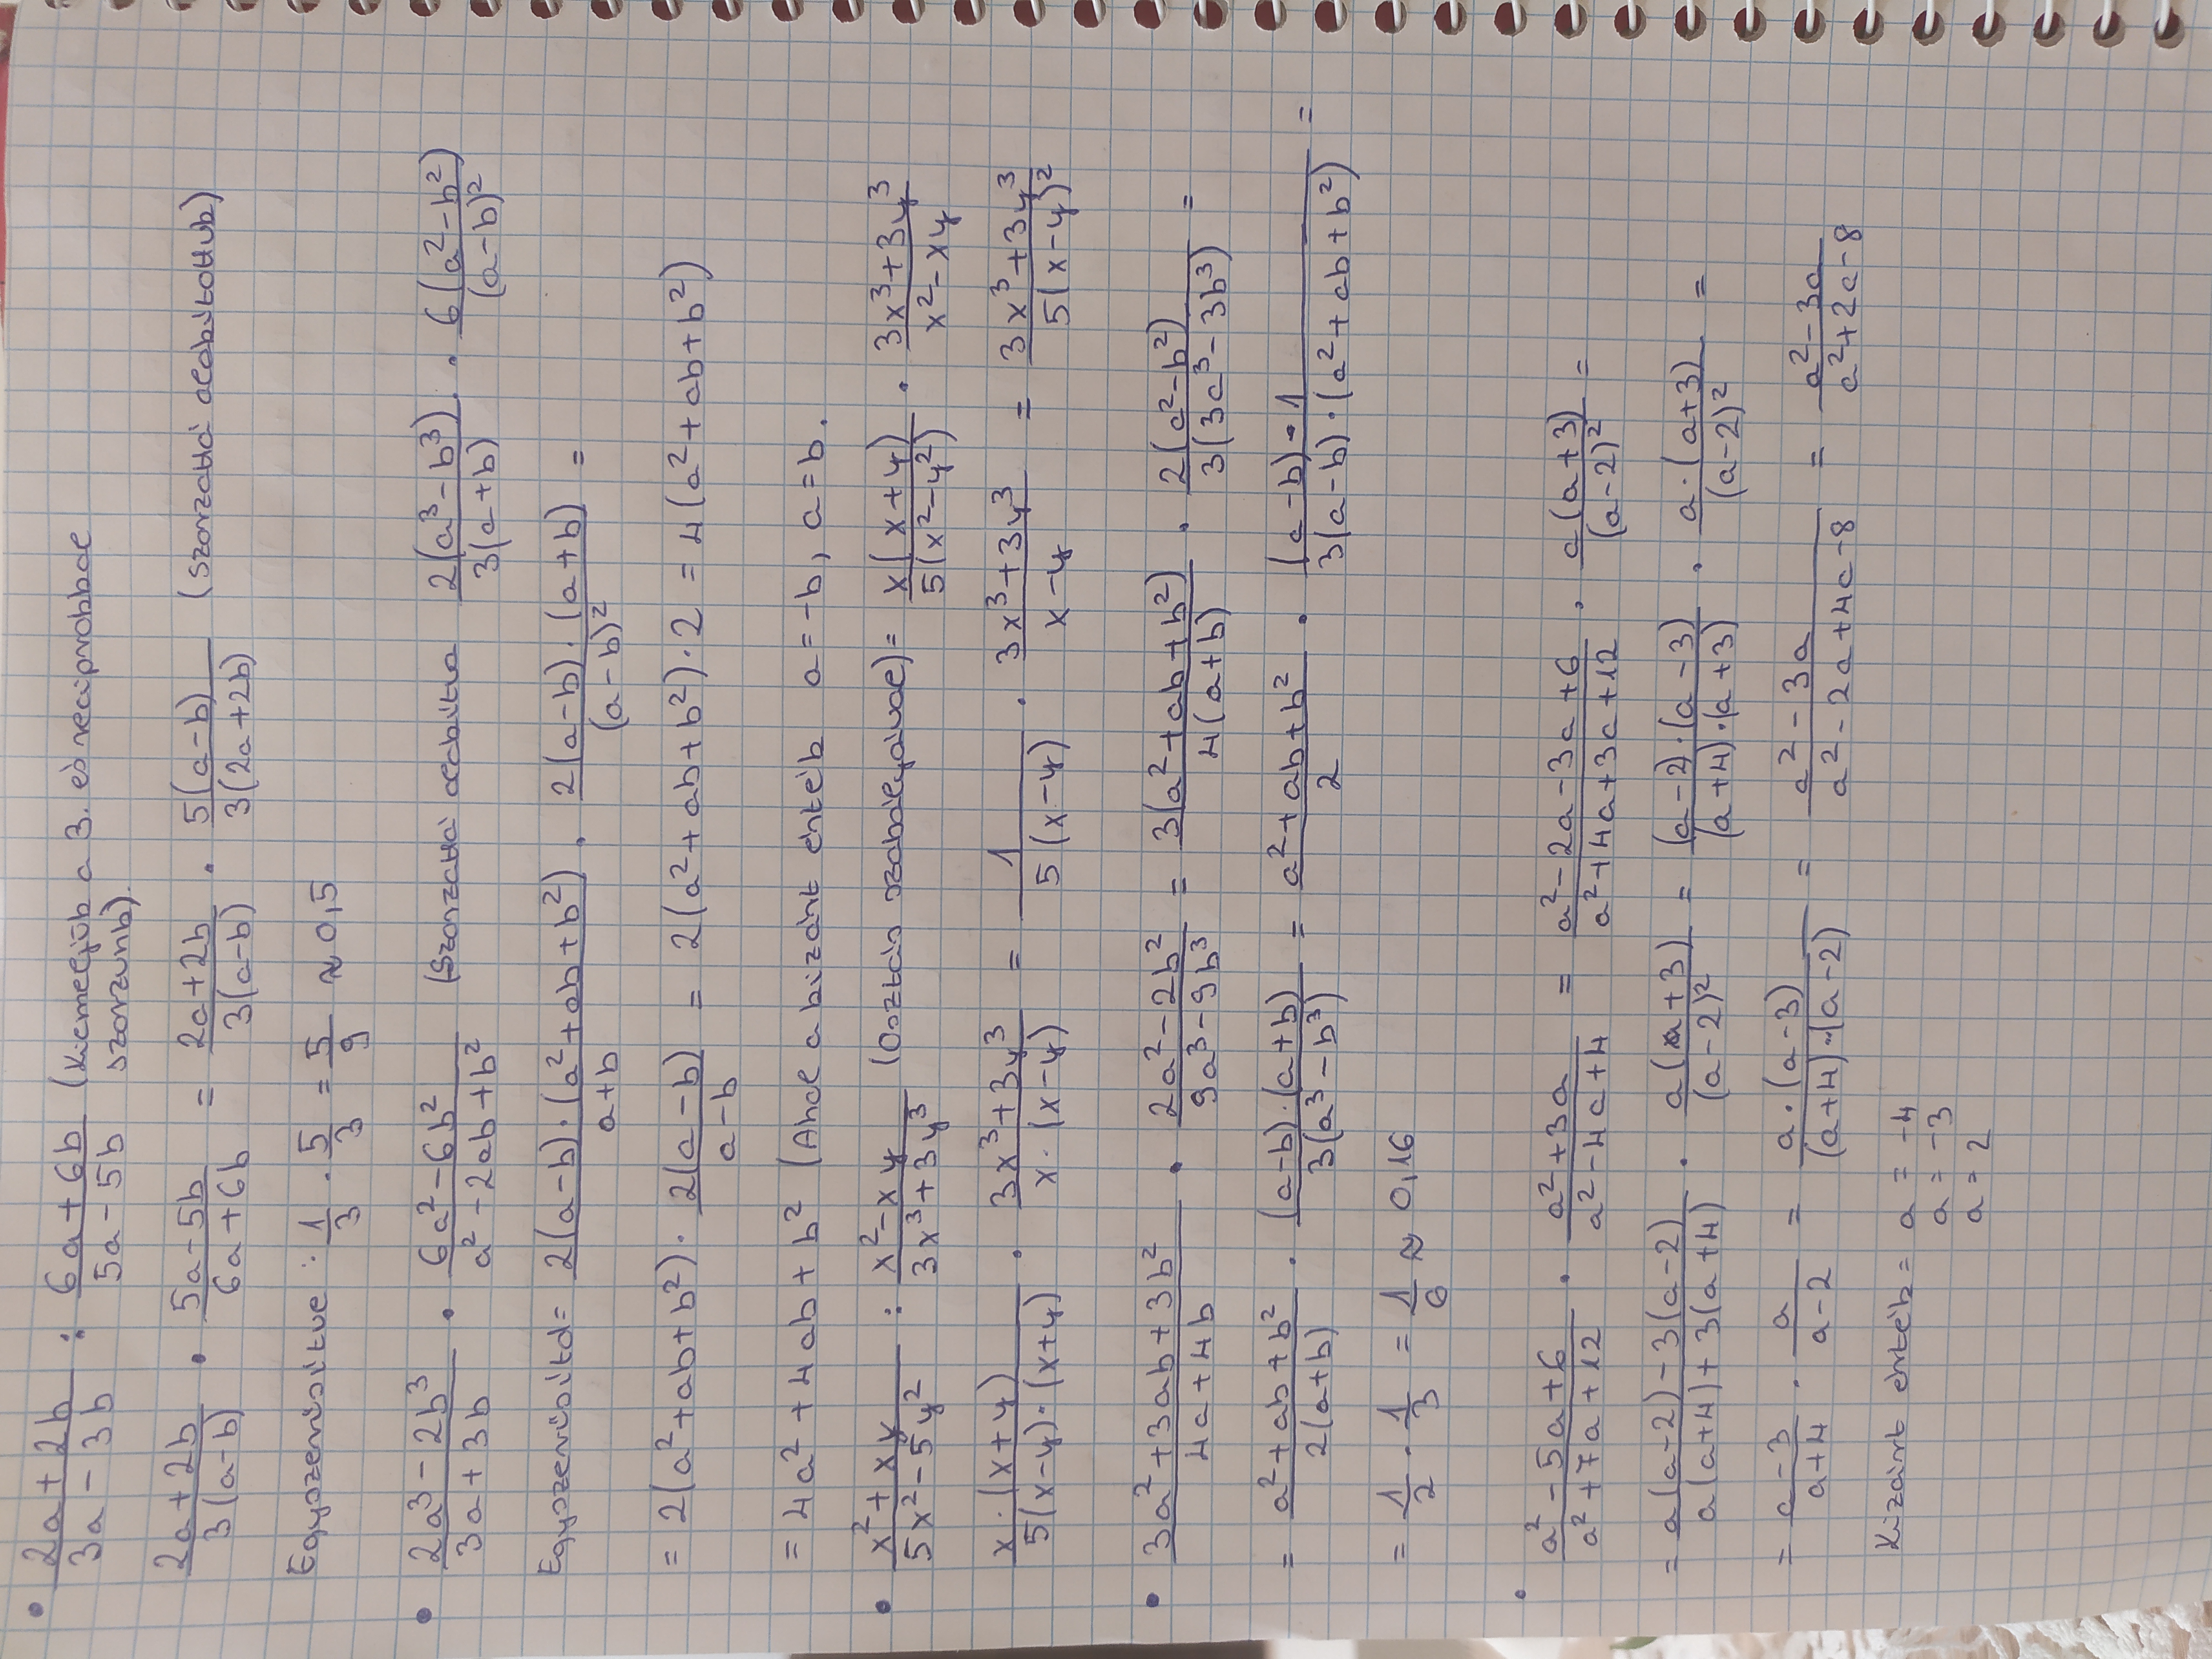 • (2a + 2b)/(3a - 3b) : (6a + 6b)/(5a - 5b) (Kiemeljük a 3. és reciprokkal szorzunk).
(2a + 2b)/(3(a-b)) · (5a-5b)/(6a+6b) = (2a+2b)/(3(a-b)) · (5(a-b))/(3(2a+2b)) (szorzattá alakítottuk)
Egyszerűsítve: 1/3 · 5/3 = 5/9 ≈ 0,5
• (2a³ - 2b³)/(3a + 3b) · (6a² - 6b²)/(a² - 2ab + b²) (Szorzattá alakítva (2(a³ - b³))/(3(a+b)) · (6(a² - b²))/((a-b)²)
Egyszerűsítd = (2(a-b)·(a²+ab+b²))/(a+b) · (2(a-b)·(a+b))/((a-b)²) =
= 2(a²+ab+b²) · (2(a-b))/(a-b) = 2(a²+ab+b²)·2 = 4(a²+ab+b²)
= 4a² + 4ab + b² (Ahol a kizárt érték a=-b, a=b.
• (x² + xy)/(5x² - 5y²) : (x² - xy)/(3x³ + 3y³) (Osztás szabályával) = (x(x+y))/(5(x²-y²)) · (3x³+3y³)/(x²-xy)
(x·(x+y))/(5(x-y)·(x+y)) · (3x³+3y³)/(x·(x-y)) = 1/(5(x-y)) · (3x³+3y³)/(x-y) = (3x³+3y³)/(5(x-y)²)
• (3a²+3ab+3b²)/(4a+4b) · (2a²-2b²)/(9a³-9b³) = (3(a²+ab+b²))/(4(a+b)) · (2(a²-b²))/(3(3a³-3b³)) =
= (a²+ab+b²)/(2(a+b)) · ((a-b)·(a+b))/(3(a³-b³)) = (a²+ab+b²)/2 · ((a-b)·1)/(3(a-b)·(a²+ab+b²)) =
= 1/2 · 1/3 = 1/6 ≈ 0,16
• (a²-5a+6)/(a²+7a+12) · (a²+3a)/(a²-4a+4) = (a²-2a-3a+6)/(a²+4a+3a+12) · (a(a+3))/((a-2)²) =
= (a(a-2)-3(a-2))/(a(a+4)+3(a+4)) · (a(a+3))/((a-2)²) = ((a-2)·(a-3))/((a+4)·(a+3)) · (a·(a+3))/((a-2)²) =
= (a-3)/(a+4) · a/(a-2) = (a·(a-3))/((a+4)·(a-2)) = (a²-3a)/(a²-2a+4a-8) = (a²-3a)/(a²+2a-8)
Kizárt érték = a = -4
a = -3
a = 2